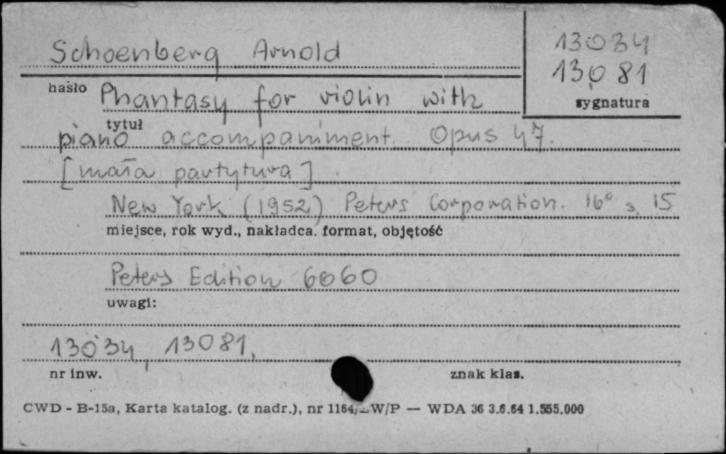 Schoenberg Arnold
13034
13081
hasło
sygnatura
Phantasy for violin with
tytuł
piano accompaniment. Opus 47.
[mała partytura]
New York (1952) Peters Corporation. 16° s. 15
miejsce, rok wyd., nakładca, format, objętość
Peters Edition 6060
uwagi:
13034, 13081,
nr inw.
znak klas.
CWD - B-15a, Karta katalog. (z nadr.), nr 1164/ W/P — WDA 36 3.6.64 1.555.000